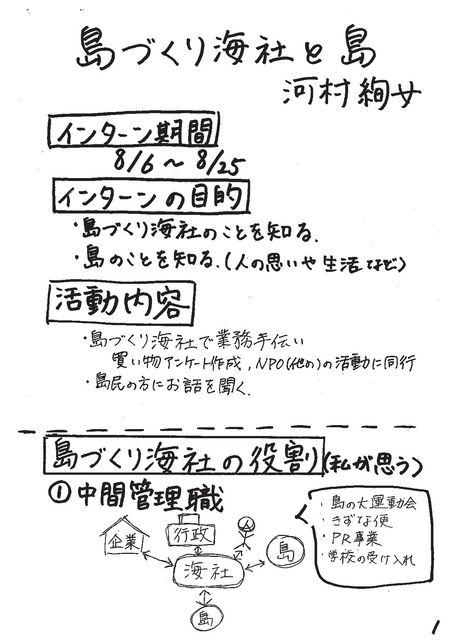 島づくり海社と島
河村絢女
インターン期間
8/6～8/25
インターンの目的
・島づくり海社のことを知る.
・島のことを知る.(人の思いや生活など)
活動内容
・島づくり海社で業務手伝い
買い物アンケート作成, NPO(他の)の活動に同行
・島民の方にお話を聞く.
島づくり海社の役割(私が思う)
①中間管理職
・島の大運動会
・きずな便
・PR事業
・学校の受け入れ
企業
行政
人
島
海社
島
1